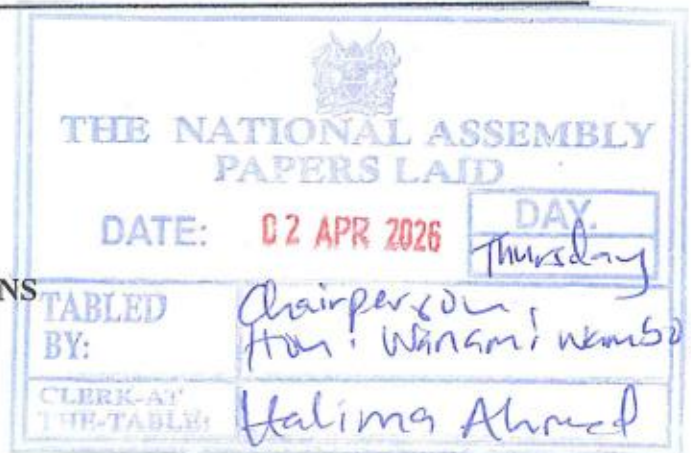 THE NATIONAL ASSEMBLY
PAPERS LAID
DATE: 02 APR 2026
DAY.
Thursday
NS
TABLED BY:
Chairperson,
Hon. Wanami Wambo
CLERK-AT
THE-TABLE:
Halima Ahmed